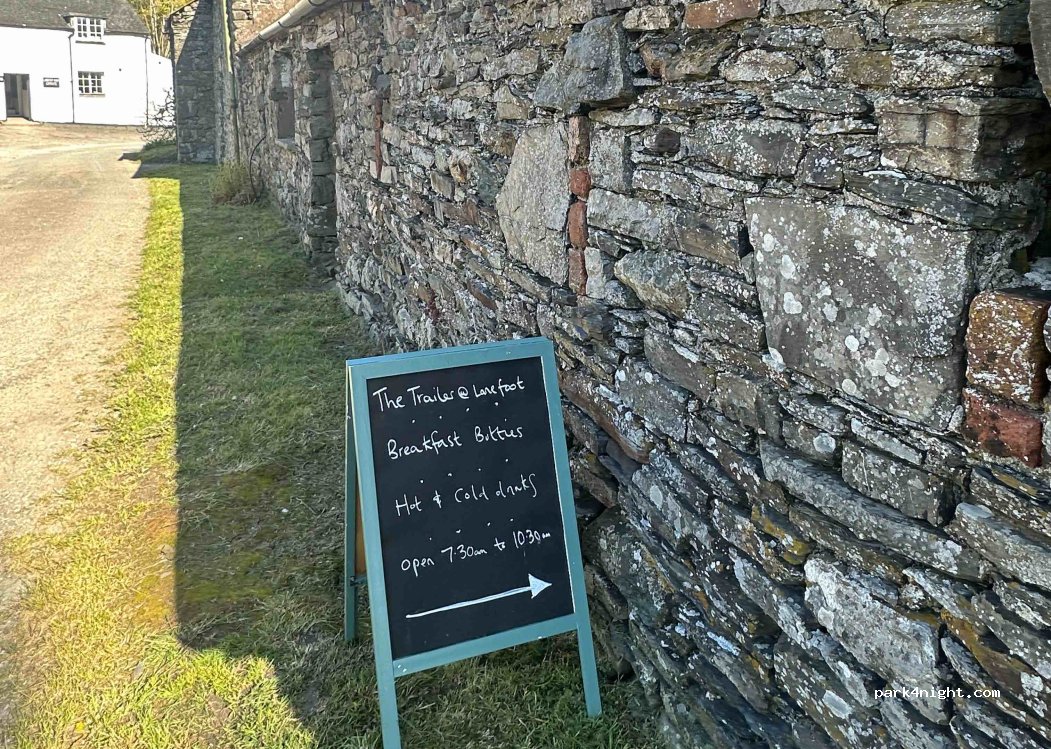 The Trailer @ Lanefoot
Breakfast Butties
Hot & Cold drinks
Open 7.30am to 10.30am
park4night.com